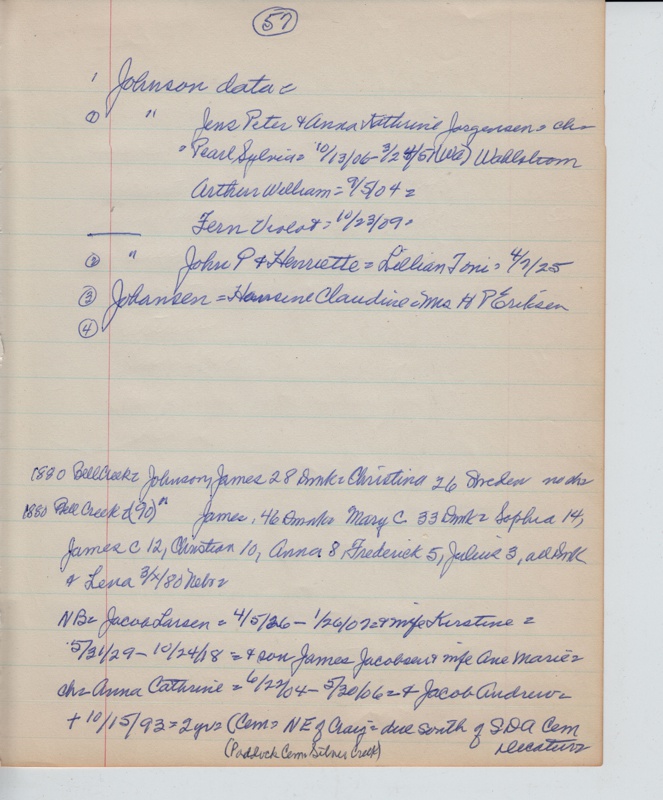 57
1 Johnson data =
① " Jens Peter & Anna Kathrine Jorgensen = ch =
= Pearl Sylvia = 10/13/06 - 3/24/57 (Wa) Wahlstrom
Arthur William = 9/5/04 =
Fern Violet = 10/23/09 =
② " John P & Henriette = Lillian Toni = 4/2/25
③ Johansen = Hansine Claudine = Mrs H P Eriksen
④
1880 Bell Creek = Johnson, James 28 Dmk = Christina 26 Sweden no ch =
1880 Bell Creek = (90) " James, 46 Dmk = Mary C. 33 Dmk = Sophia 14,
James C 12, Christian 10, Anna 8 Frederick 5, Julius 3, all Dmk
& Lena 3/ /80 Nebr =
NB = Jacob Larsen = 4/5/26 - 1/26/07 = & wife Kirstine =
5/31/29 - 10/24/18 = & son James Jacobsen & wife Ane Marie =
ch = Anna Cathrine = 6/22/04 - 5/30/06 = & Jacob Andrew =
+ 10/15/93 = 2 yrs = (Cem = NE of Craig = due South of SDA Cem
(Paddock Cem = Silver Creek) Decatur =